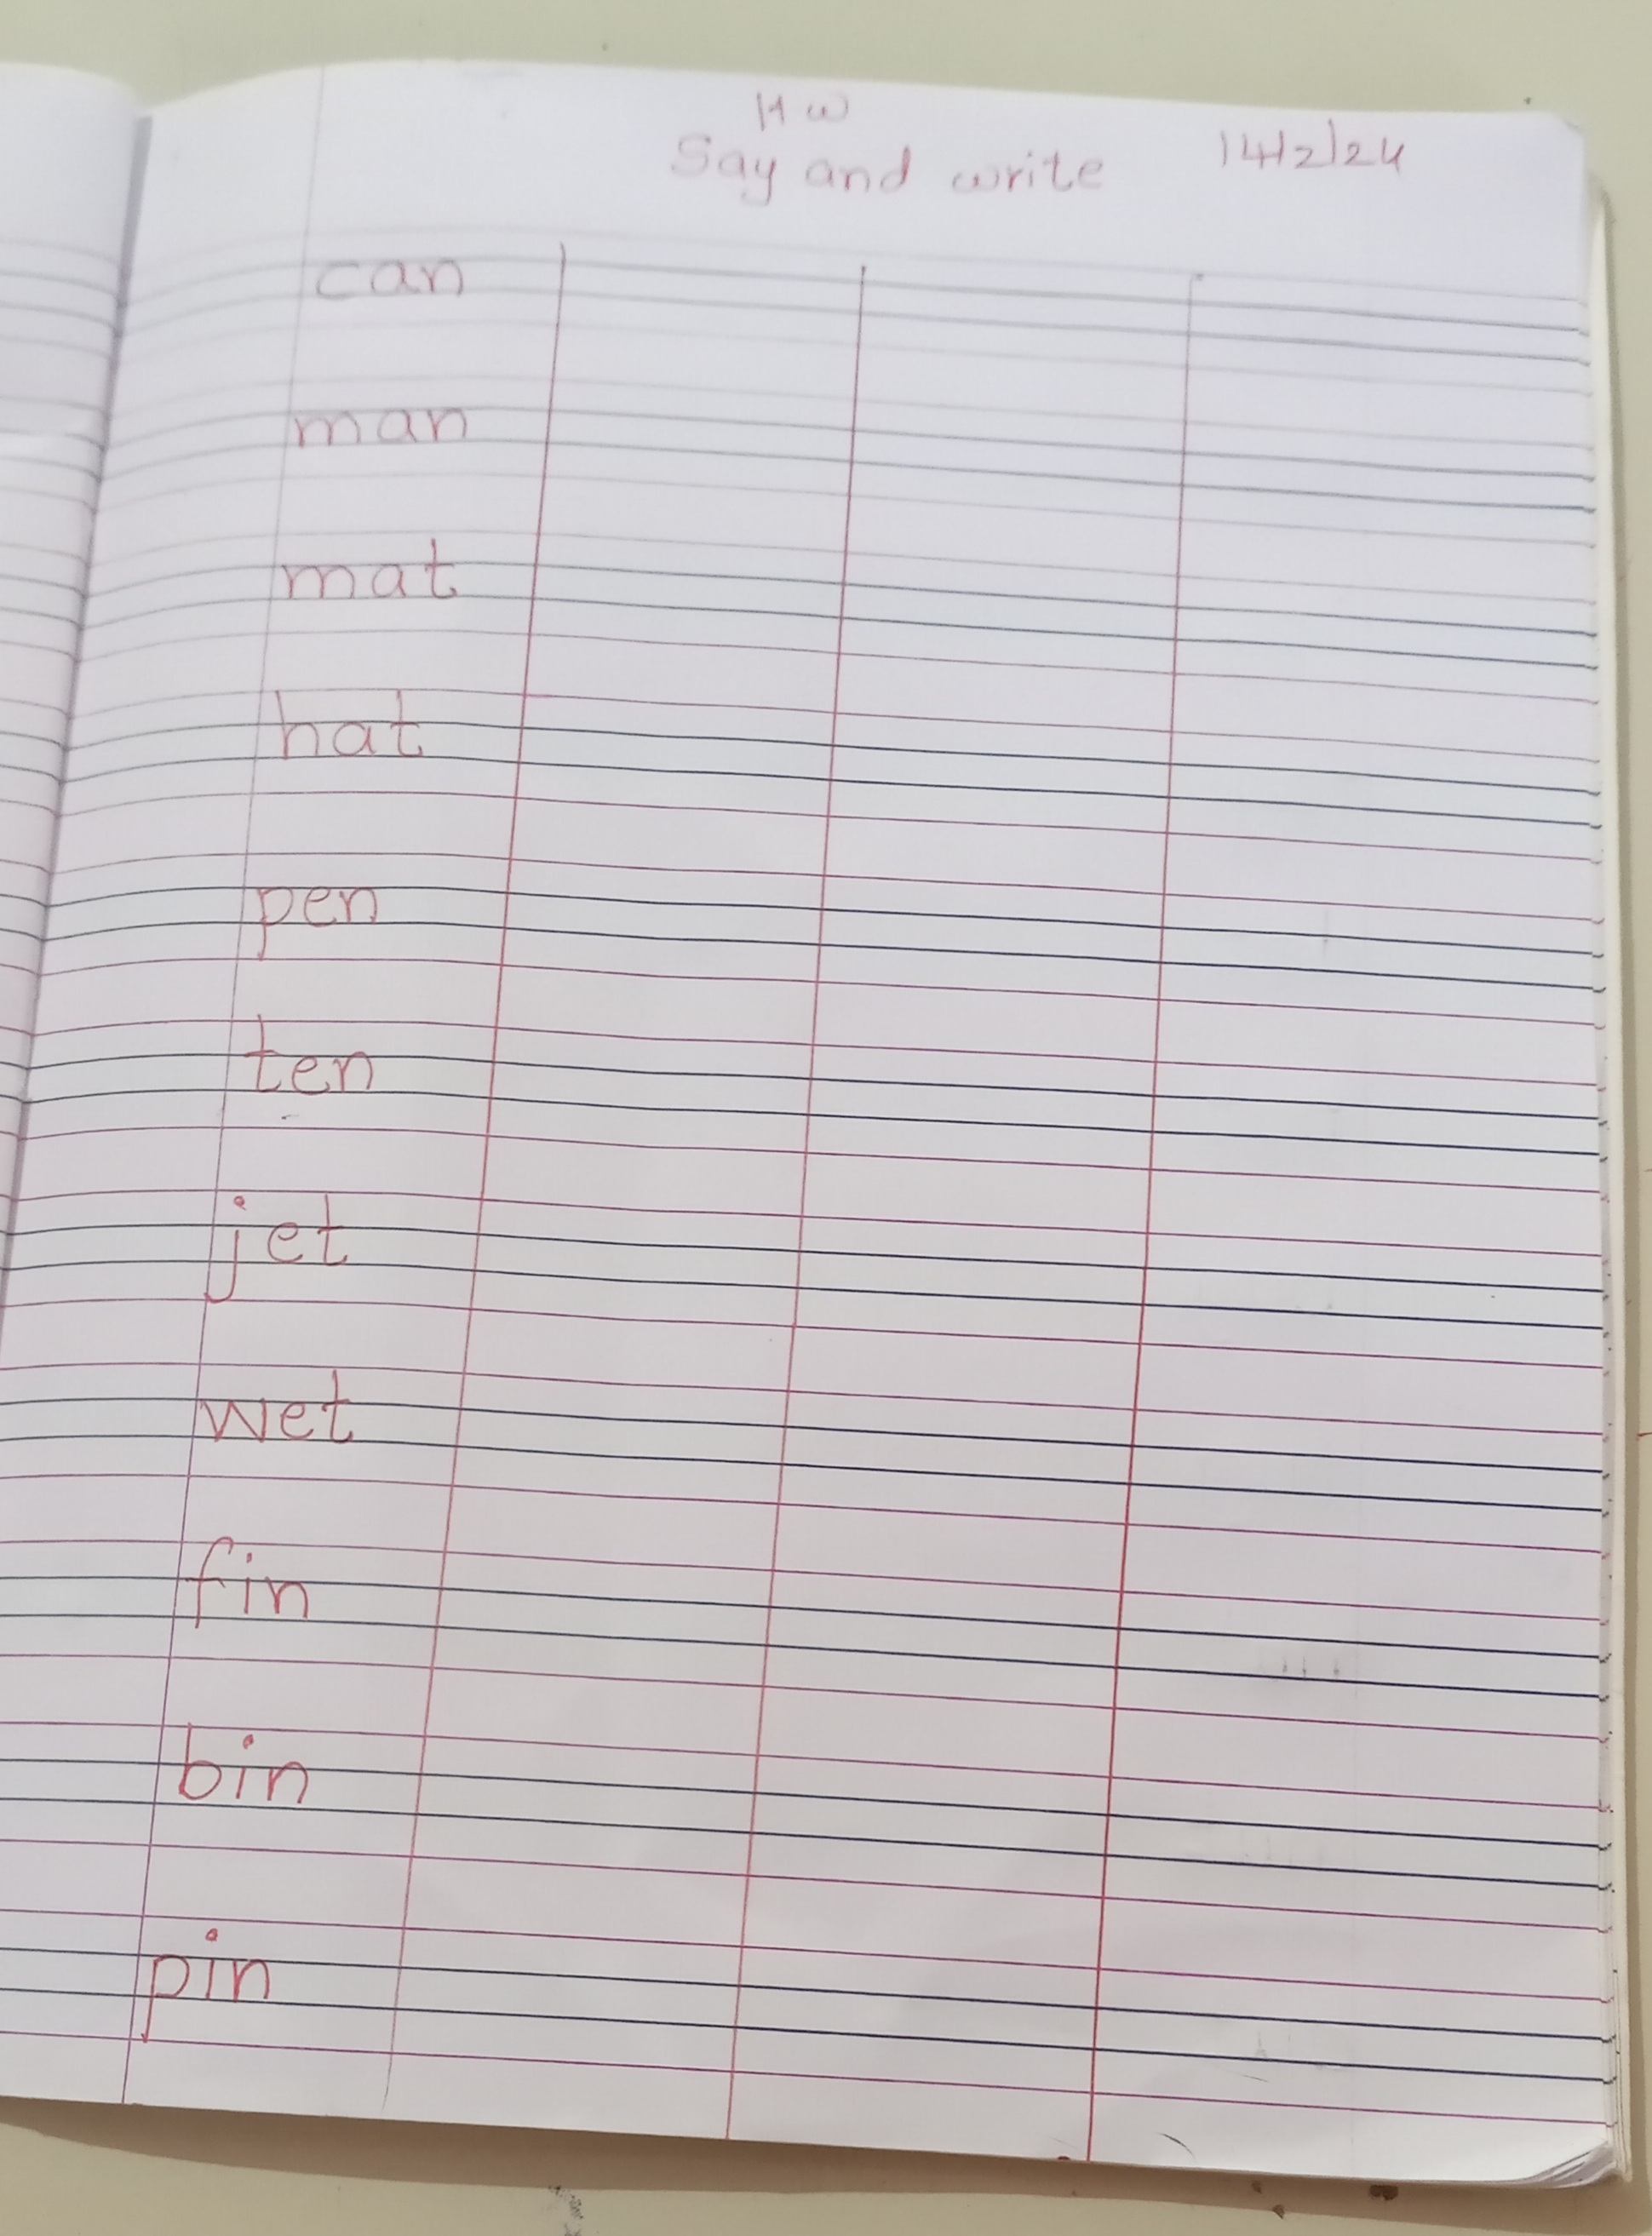 HW
Say and write 14/2/24
can
man
mat
hat
pen
ten
jet
wet
fin
bin
pin